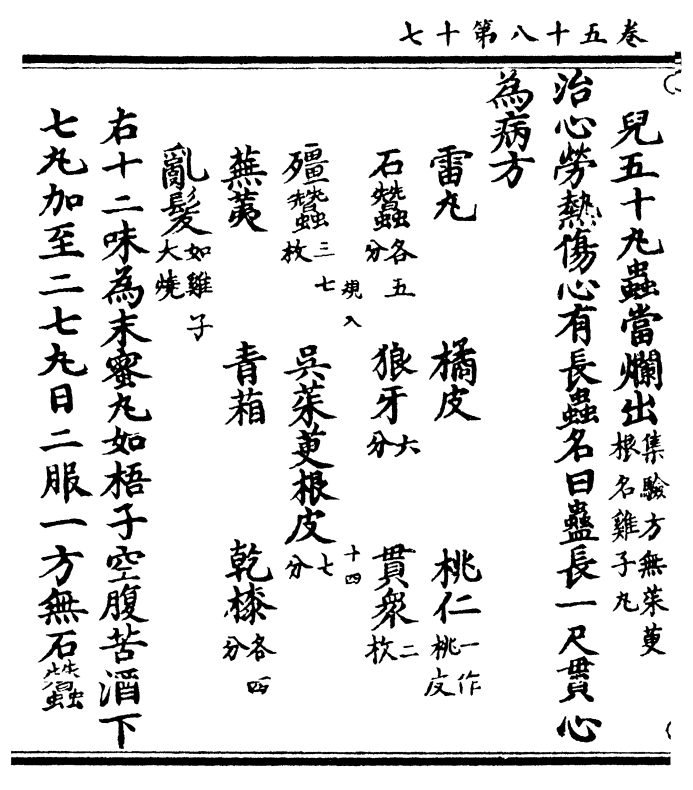 卷五十八第十七
兒五十丸蟲當爛出集驗方無茱萸根名雞子丸
治心勞熱傷心有長蟲名曰蠱長一尺貫心
為病方
雷丸 橘皮 桃仁一作桃皮
石蠶各五分 狼牙六分 貫衆二枚
殭蠶三七枚 吳茱萸根皮七分
蜆入 十四
蕪荑 青葙 乾㯃各四分
亂髮如雞子大燒
右十二味為末蜜丸如梧子空腹苦酒下
七丸加至二七丸日二服一方無石蠶